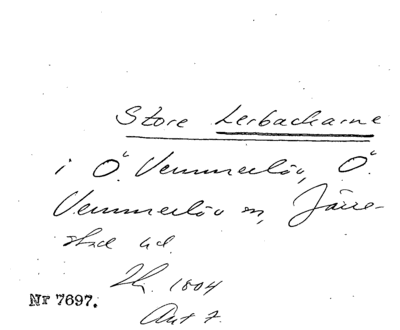 Store Lerbackarne
i Ö. Vemmerlöv, Ö.
Vemmerlöv sn, Järre-
stad hd.
1804
Akt 7.
Nr 7697.